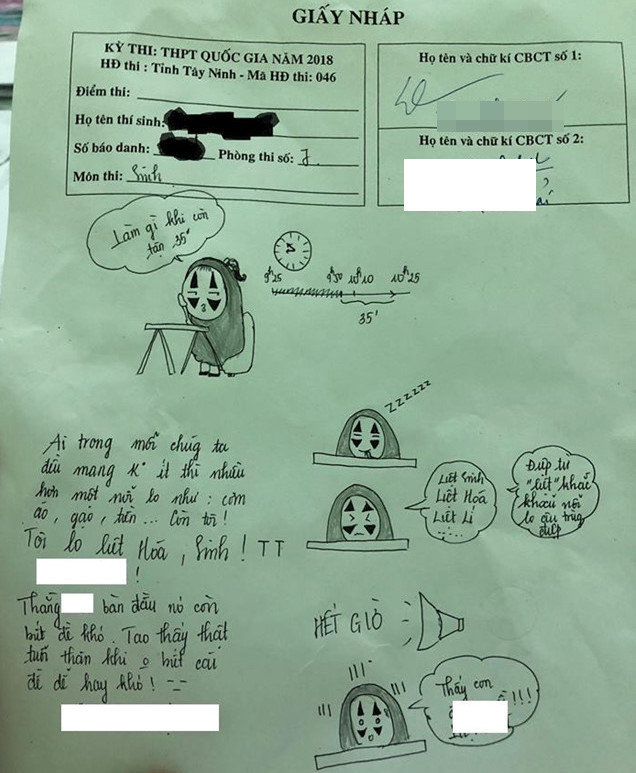 GIẤY NHÁP
KỲ THI: THPT QUỐC GIA NĂM 2018
HĐ thi : Tỉnh Tây Ninh - Mã HĐ thi: 046
Điểm thi:
Họ tên thí sinh:
Số báo danh: Phòng thi số: 7.
Môn thi: Sinh
Họ tên và chữ kí CBCT số 1:
Họ tên và chữ kí CBCT số 2:
Làm gì khi còn
tận 35'
9h25 9h50 10h10 10h25
35'
zzzzzz
Ai trong mỗi chúng ta
đều mang k° ít thì nhiều
hơn một nỗi lo như : cơm
áo, gạo, tiền ... Còn tôi !
Tôi lo liệt Hóa, Sinh ! TT
!
Liệt Sinh
Liệt Hóa
Liệt Lí
......
Đúp tư
"liệt" khắc
khoải nỗi
lo
Thằng bàn đầu nó còn
biết đề khó. Tao thấy thật
tuổi thân khi o biết cái
đề dễ hay khó ! =-
HẾT GIỜ
Thấy con
!!!